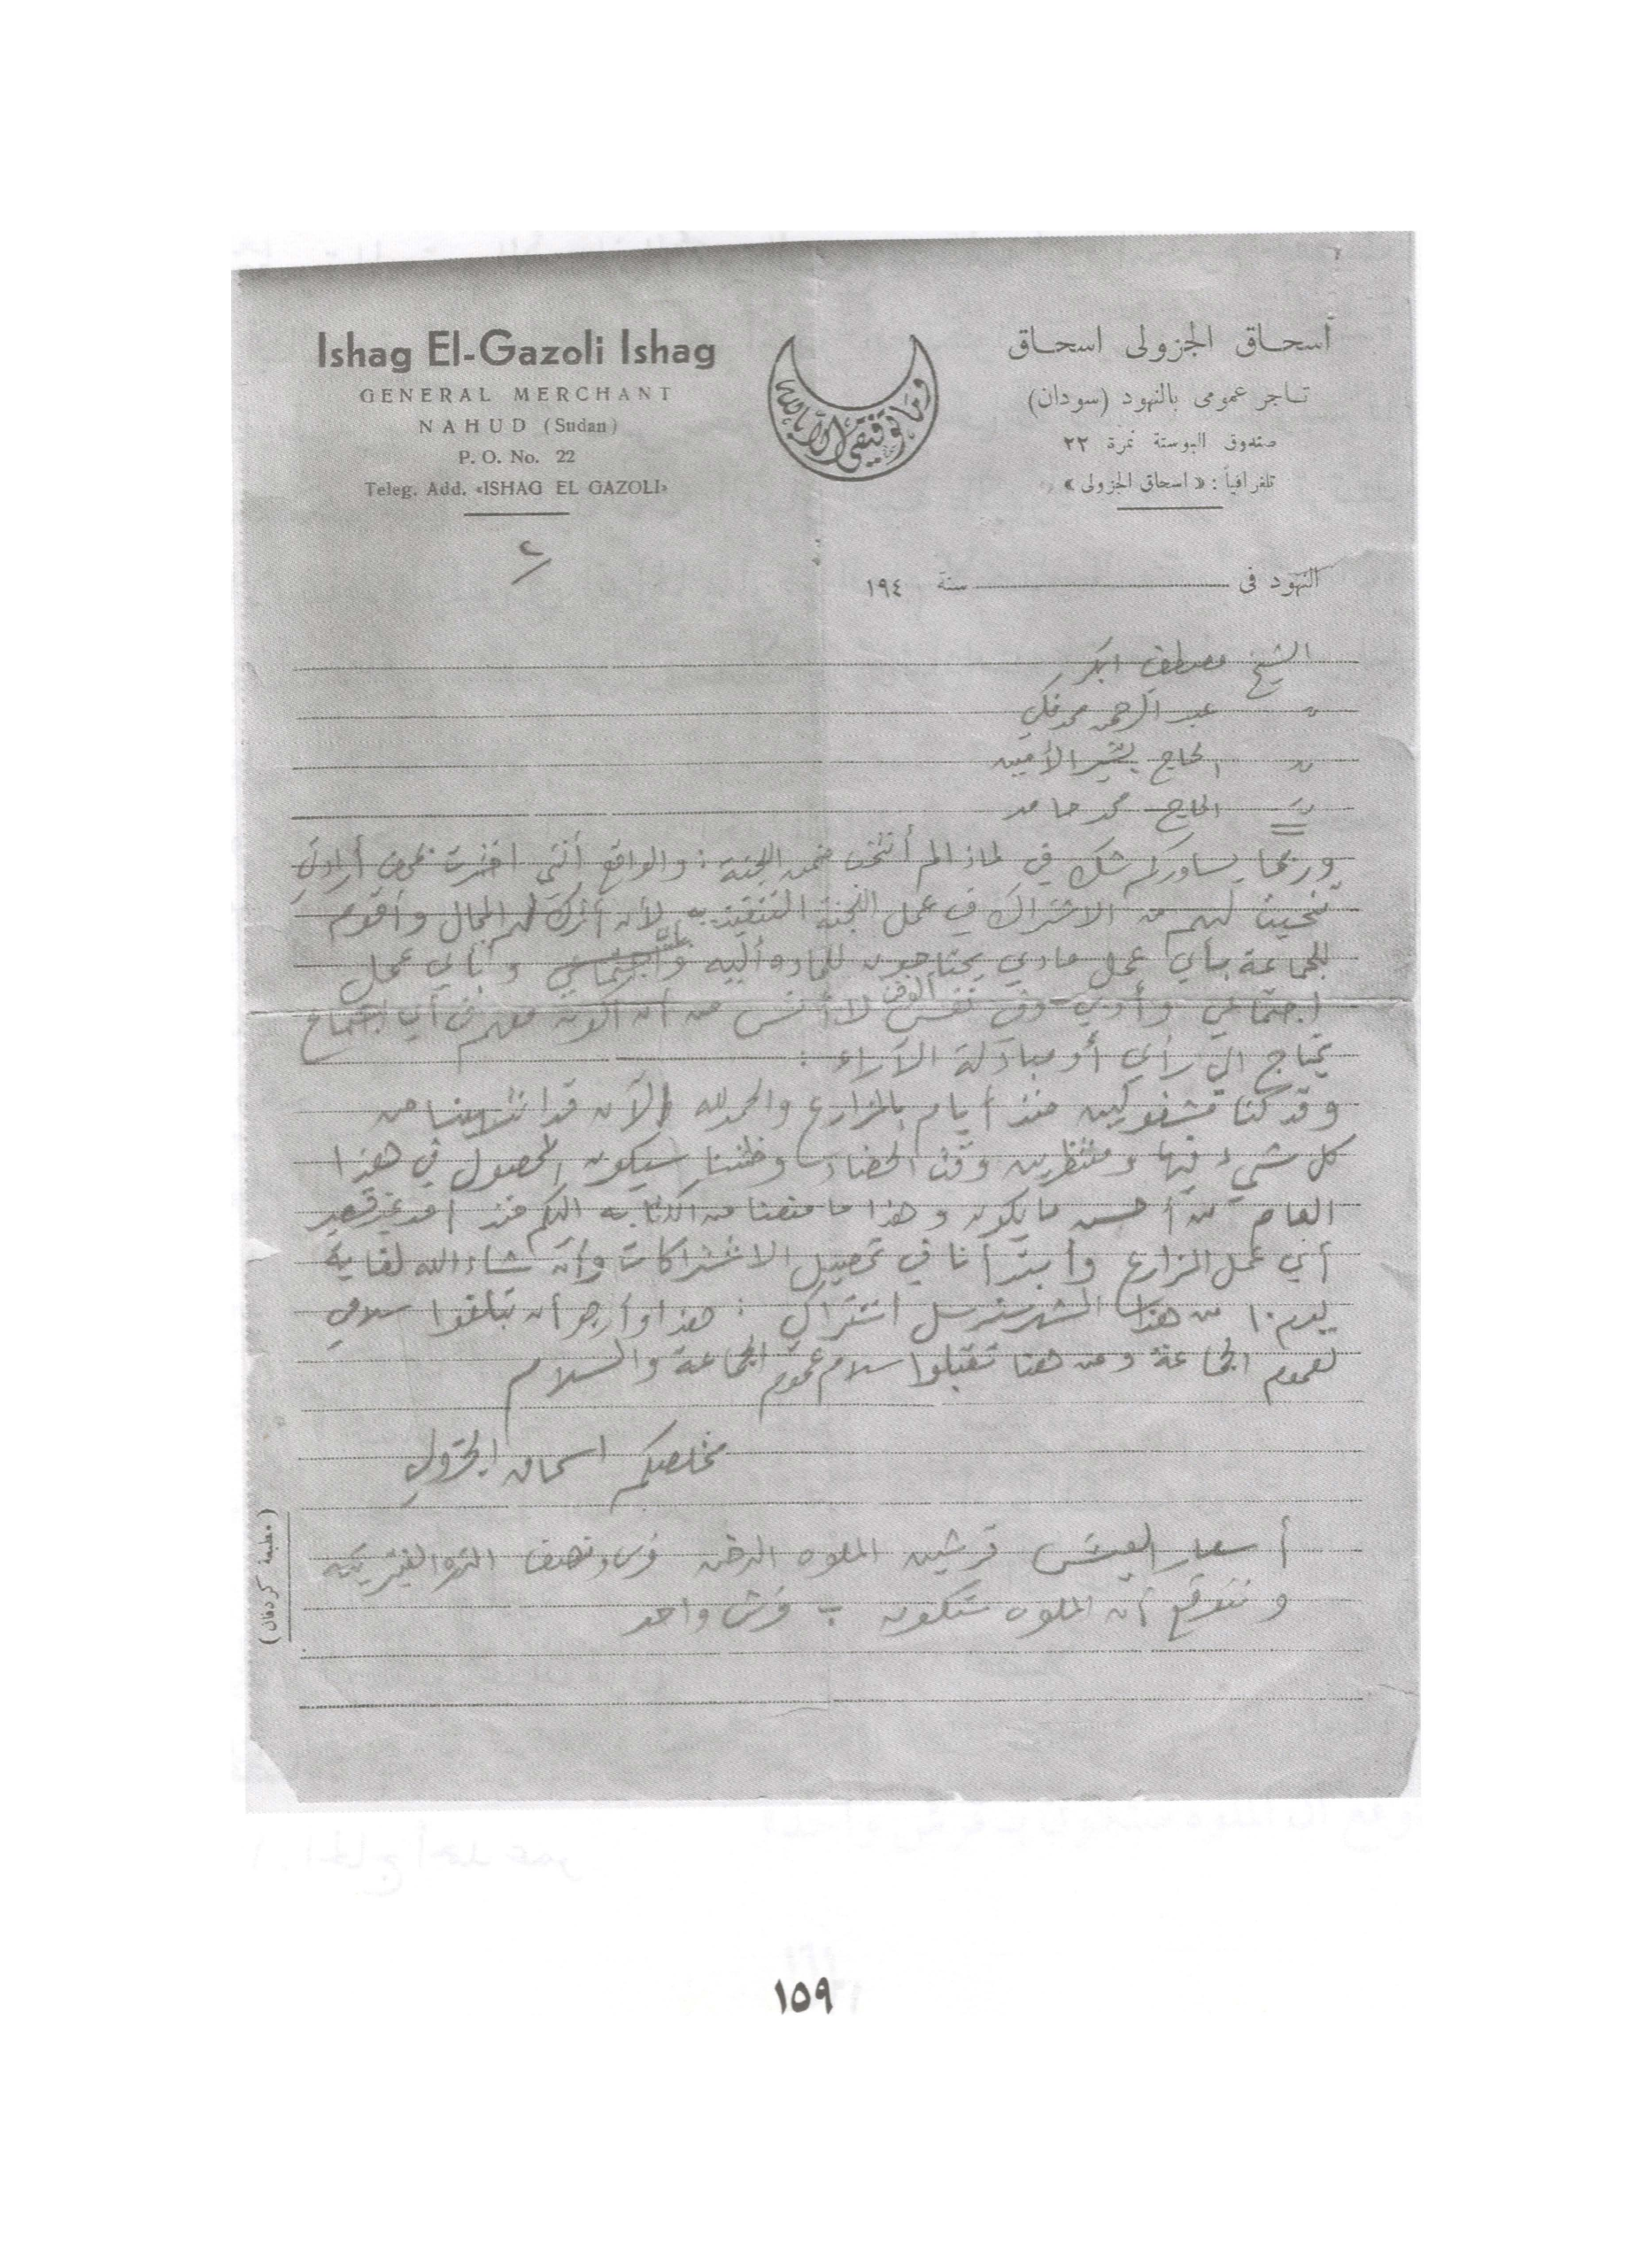 Ishag El-Gazoli Ishag
GENERAL MERCHANT
NAHUD (Sudan)
P. O. No. 22
Teleg. Add. «ISHAG EL GAZOLI»
وما توفيقي إلا بالله
أسحاق الجزولى اسحاق
تاجر عمومى بالنهود (سودان)
صندوق البوستة نمرة ٢٢
تلغرافياً : « اسحاق الجزولى »
٢
النهود فى سنة ١٩٤
الشيخ مصطفى ابكر
" عبد الرحمن محمد فكي
" الحاج بشير الأمين
" الحاج محمد حامد
وربما يساوركم شك في لماذا لم أنتخب ضمن اللجنة : والواقع أنني اخترت بمحض أرادتي
تنحيت لهم من الاشتراك في عمل اللجنة التنفيذيه لأن أترك لهم المجال وأقوم
للجماعة بأي عمل مادي يحتاجون للماده أليه وبأي عمل
اجتماعي وأدبي وفي نفس الوقت لا أنس من أن أكون معهم في أي اجتماع
يحتاج الي رأي أو مبادلة الآراء :
وقد كنا مشغوليين منذ أيام بالمزارع والحمد لله الآن قد انتهينا من
كل شيء فيها ومنتظرين وقت الحصاد وظننا سيكون المحصول في هذا
العام من أحسن ما يكون وهذا ما منعنا من الكتابه اليكم منذ أمد غير قصير
أي عمل المزارع وأبتدأنا في تحصيل الاشتراكات وأن شاء الله لغاية
يوم ١٠ من هذا الشهر سنرسل اشتراك : هذا وأرجو أن تبلغوا سلامي
لعموم الجماعة ومن هنا تقبلوا سلام عموم الجماعة والسلام
مخلصكم اسحاق الجزولي
أسعار العيش قرشين الملوه الدخن قرش ونصف الذره الفيتريته
ونتوقع أن الملوه ستكون ب قرش واحد
( مطبعة كردفان )
١٥٩